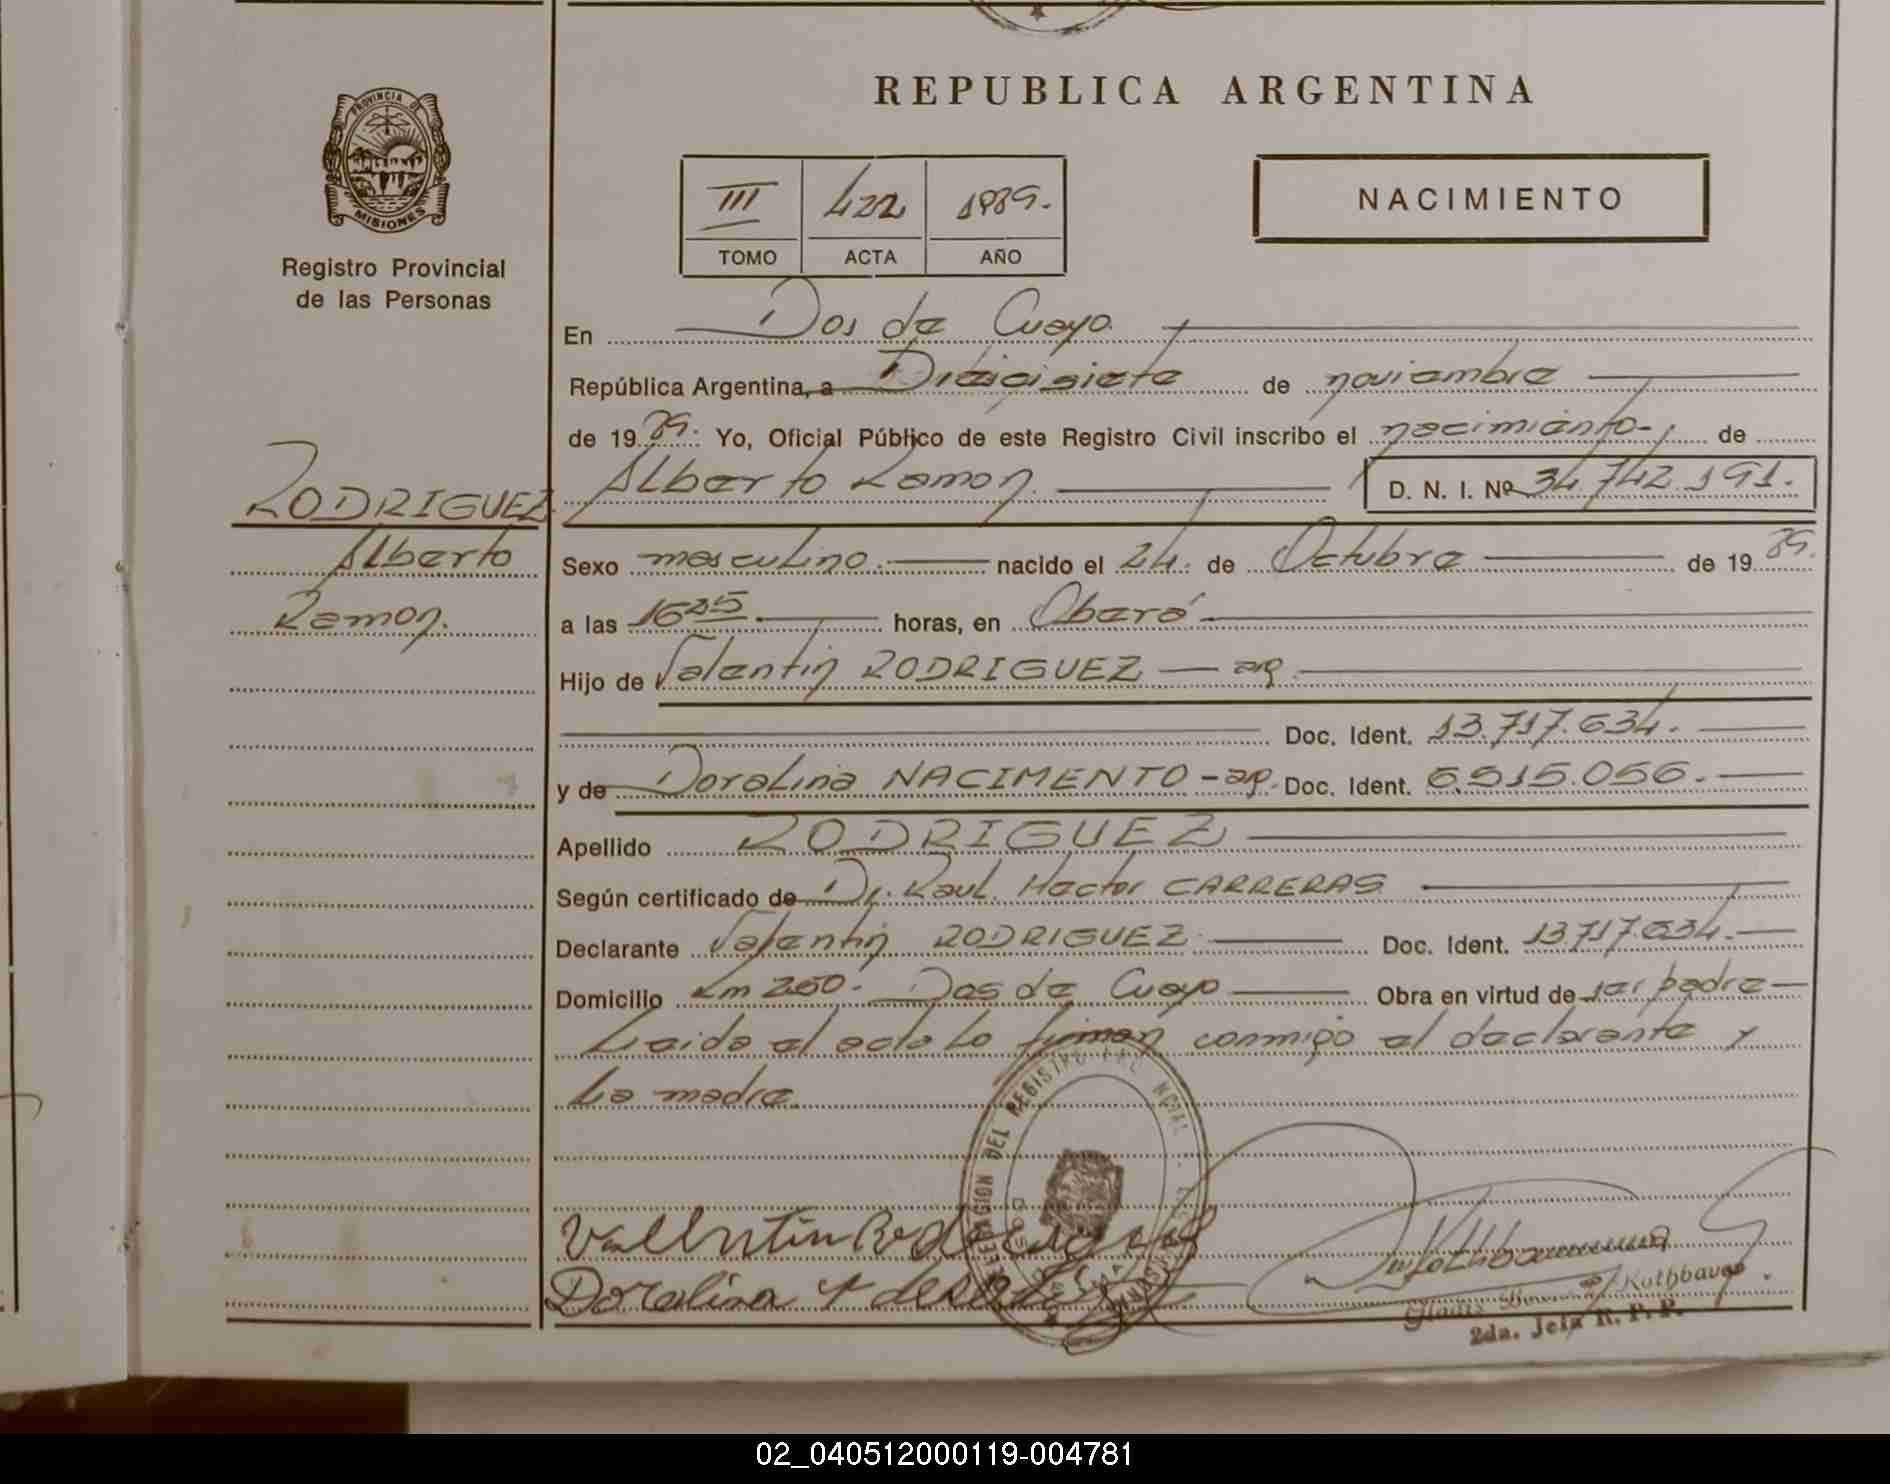 REPUBLICA ARGENTINA
PROVINCIA DE
MISIONES
Registro Provincial
de las Personas
III 422 1989.
TOMO ACTA AÑO
NACIMIENTO
En Dos de Cuayo
República Argentina, a Diecisiete de noviembre
de 19 89. Yo, Oficial Público de este Registro Civil inscribo el nacimiento de
Alberto Ramon. D. N. I. Nº 34.742.191.
RODRIGUEZ
Alberto
Ramon.
Sexo masculino. nacido el 24. de Octubre de 19 89.
a las 16 horas, en Oberá
Hijo de Valentin RODRIGUEZ — ap.
Doc. Ident. 13.717.634.
y de Doralina NACIMENTO - ap. Doc. Ident. 6.515.056.
Apellido RODRIGUEZ
Según certificado de Dr. Raul Hector CARRERAS
Declarante Valentin RODRIGUEZ Doc. Ident. 13.717.634.
Domicilio Km 260. Dos de Cuayo Obra en virtud de ser padre
Leida el acta lo firman conmigo el declarante y
la madre.
DEL REGISTRO
Doralina
Gladis Kuthbauer
2da. Jefa R. P. P.
02_040512000119-004781